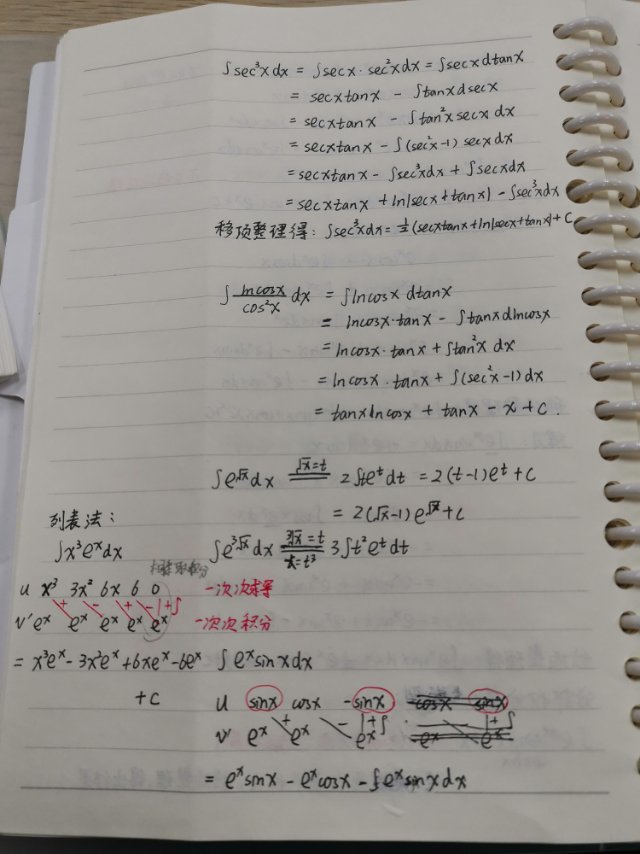 ∫sec³xdx = ∫secx·sec²xdx = ∫secxdtanx
= secxtanx - ∫tanxdsecx
= secxtanx - ∫tan²xsecxdx
= secxtanx - ∫(sec²x-1)secxdx
= secxtanx - ∫sec³xdx + ∫secxdx
= secxtanx + ln|secx+tanx| - ∫sec³xdx
移项整理得: ∫sec³xdx = ½(secxtanx+ln|secx+tanx|)+C
∫ lncosx/cos²x dx = ∫lncosxdtanx
= lncosx·tanx - ∫tanxdlncosx
= lncosx·tanx + ∫tan²xdx
= lncosx·tanx + ∫(sec²x-1)dx
= tanxlncosx + tanx - x + C.
∫e^√x dx =(√x=t)= 2∫te^t dt = 2(t-1)e^t + C
= 2(√x-1)e^√x + C
列表法:
∫x³eˣdx
∫e^∛x dx =(∛x=t, x=t³)= 3∫t²e^t dt
=
u x³ 3x² 6x 6 0 一次次求导
+ - + - |+∫
v' eˣ eˣ eˣ eˣ eˣ 一次次积分
= x³eˣ - 3x²eˣ + 6xeˣ - 6eˣ
+C
∫eˣsinxdx
u sinx cosx -sinx
+ - |+∫
v' eˣ eˣ eˣ
= eˣsinx - eˣcosx - ∫eˣsinxdx